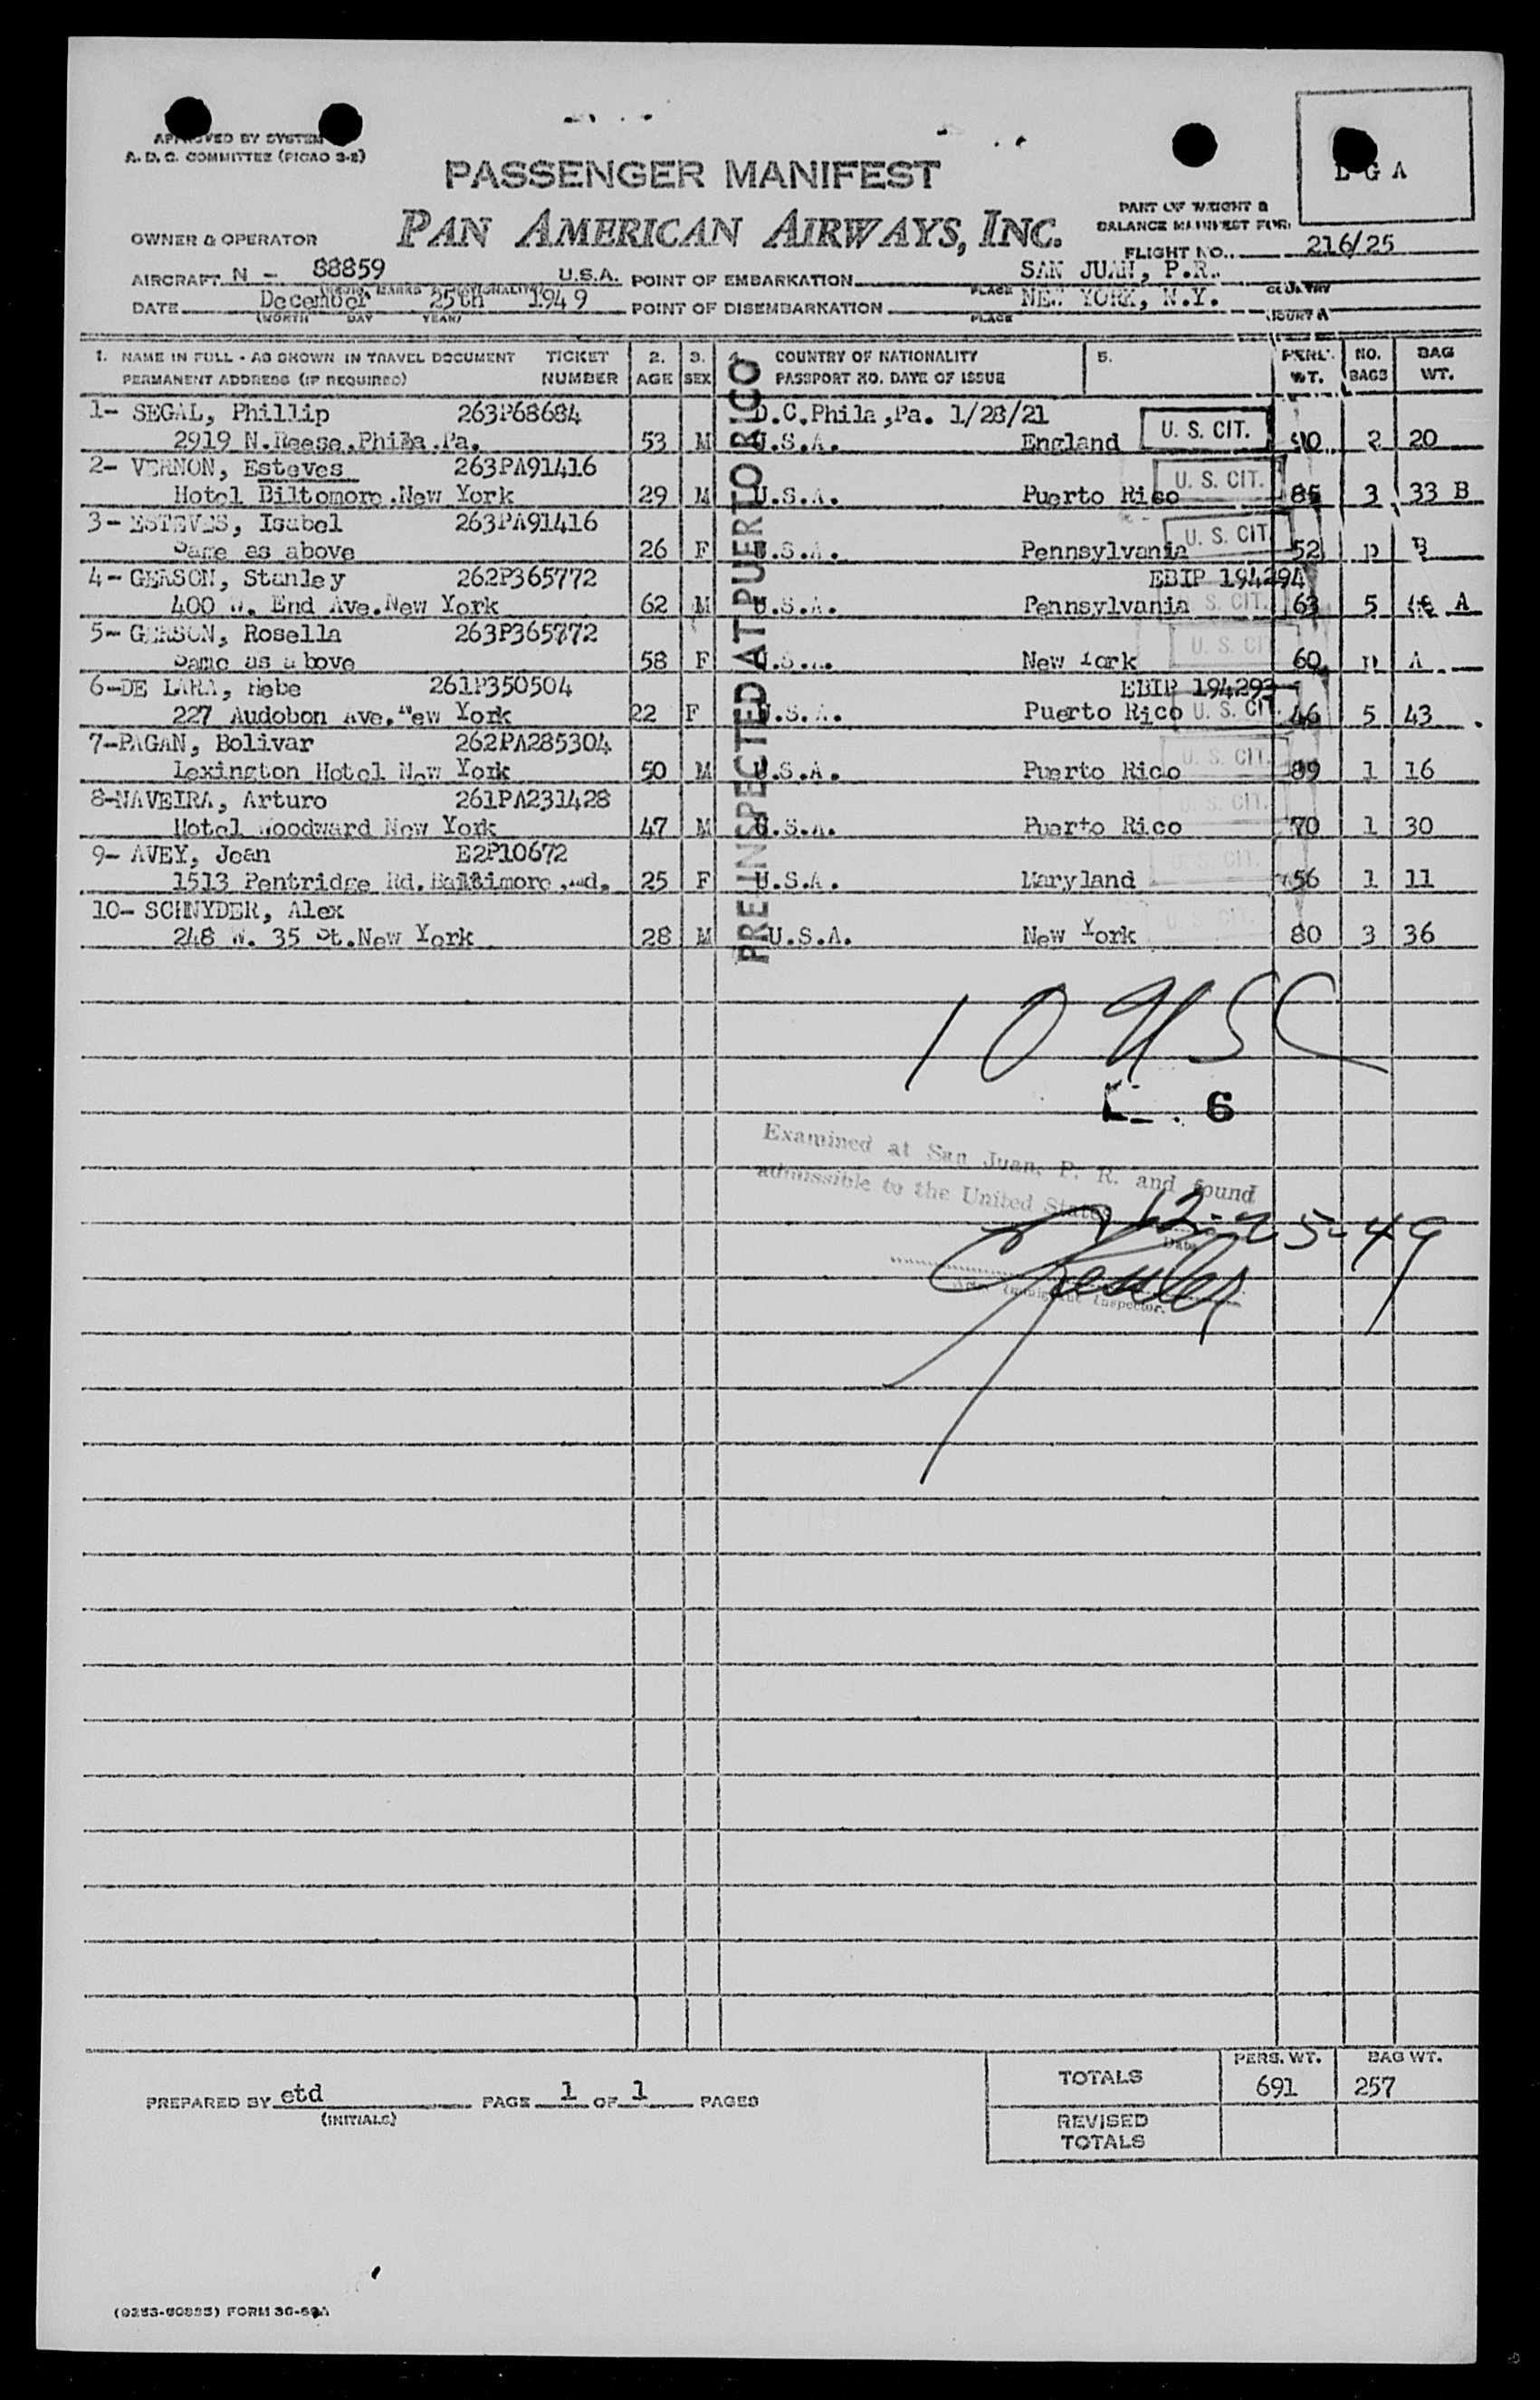 APPROVED BY SYSTEM
A. D. C. COMMITTEE (PICAO 3-2)
PASSENGER MANIFEST
G A
PART OF WEIGHT &
BALANCE MANIFEST FOR:
OWNER & OPERATOR
PAN AMERICAN AIRWAYS, INC.
FLIGHT NO. 216/25
AIRCRAFT N - 88859 U.S.A. POINT OF EMBARKATION SAN JUAN, P.R.
PLACE COUNTRY
DATE December 25th 1949 POINT OF DISEMBARKATION NEW YORK, N.Y.
(MONTH DAY YEAR) PLACE
1. NAME IN FULL - AS SHOWN IN TRAVEL DOCUMENT TICKET 2. 3. 4. COUNTRY OF NATIONALITY 5. PERS. NO. BAG
PERMANENT ADDRESS (IF REQUIRED) NUMBER AGE SEX PASSPORT NO. DATE OF ISSUE WT. BAGS WT.
PRE INSPECTED AT PUERTO RICO
1- SEGAL, Phillip 263P68684 D.C.Phila,Pa. 1/28/21
2919 N.Reese.Phila.Pa. 53 M U.S.A. England U. S. CIT. 90 2 20
2- VERNON, Esteves 263PA91416
Hotel Biltomore.New York 29 M U.S.A. Puerto Rico U. S. CIT. 85 3 33 B
3- ESTEVES, Isabel 263PA91416
Same as above 26 F U.S.A. Pennsylvania U. S. CIT 52 B
4- GERSON, Stanley 262P365772 EBIP 194294
400 W. End Ave.New York 62 M U.S.A. Pennsylvania U. S. CIT. 63 5 A
5- GERSON, Rosella 263P365772
Same as above 58 F U.S.A. New York U. S. CIT 60 A
6-DE LARA, Hebe 261P350504 EBIP 194293
227 Audobon Ave.New York 22 F U.S.A. Puerto Rico U. S. CIT. 46 5 43
7-PAGAN, Bolivar 262PA285304
Lexington Hotel New York 50 M U.S.A. Puerto Rico U. S. CIT. 89 1 16
8-NAVEIRA, Arturo 261PA231428
Hotel Woodward New York 47 M U.S.A. Puerto Rico U. S. CIT. 70 1 30
9- AVEY, Jean E2P10672
1513 Pentridge Rd.Baltimore.Md. 25 F U.S.A. Maryland U. S. CIT. 56 1 11
10- SCHNYDER, Alex
248 W. 35 St.New York 28 M U.S.A. New York U. S. CIT. 80 3 36
10 USC
6
Examined at San Juan, P. R. and found
admissible to the United States 12-25-49
Date
Immigrant Inspector.
TOTALS PERS. WT. BAG WT.
691 257
PREPARED BY etd PAGE 1 OF 1 PAGES
(INITIALS)
REVISED
TOTALS